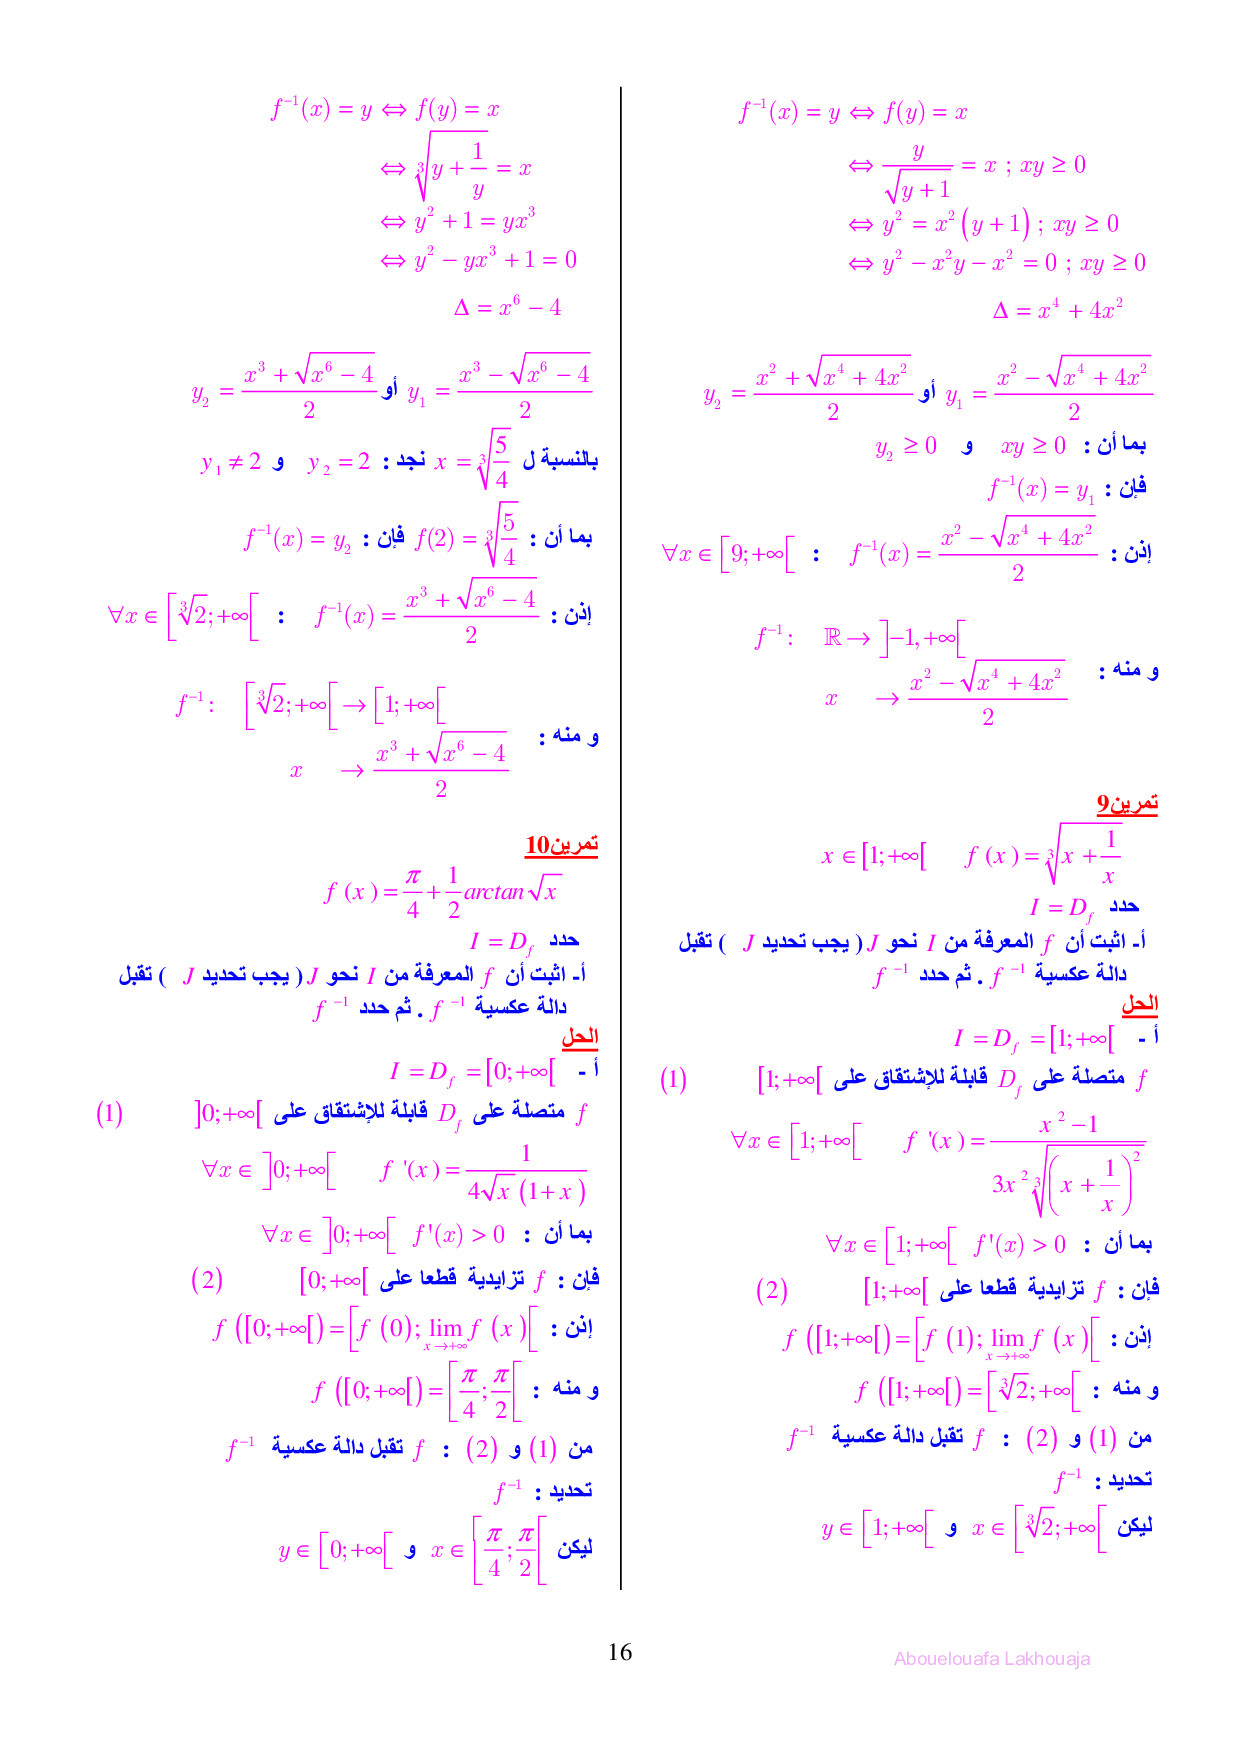 f⁻¹(x) = y ⇔ f(y) = x
⇔ y/√(y+1) = x ; xy ≥ 0
⇔ y² = x²(y+1) ; xy ≥ 0
⇔ y² − x²y − x² = 0 ; xy ≥ 0
Δ = x⁴ + 4x²
y₁ = (x² − √(x⁴ + 4x²))/2 أو y₂ = (x² + √(x⁴ + 4x²))/2
بما أن : xy ≥ 0 و y₂ ≥ 0
فإن : f⁻¹(x) = y₁
إذن : f⁻¹(x) = (x² − √(x⁴ + 4x²))/2 : ∀x ∈ [9;+∞[
f⁻¹ : ℝ → ]−1,+∞[
و منه :
x → (x² − √(x⁴ + 4x²))/2
تمرين9
f(x) = ∛(x + 1/x) x ∈ [1;+∞[
حدد I = D_f
أ- اثبت أن f المعرفة من I نحو J ( يجب تحديد J ) تقبل
دالة عكسية f⁻¹ . ثم حدد f⁻¹
الحل
أ - I = D_f = [1;+∞[
f متصلة على D_f قابلة للإشتقاق على [1;+∞[ (1)
∀x ∈ [1;+∞[ f'(x) = (x² − 1)/(3x² ∛((x + 1/x)²))
بما أن : ∀x ∈ [1;+∞[ f'(x) > 0
فإن : f تزايدية قطعا على [1;+∞[ (2)
إذن : f([1;+∞[) = [f(1); lim_{x→+∞} f(x)[
و منه : f([1;+∞[) = [∛2;+∞[
من (1) و (2) : f تقبل دالة عكسية f⁻¹
تحديد : f⁻¹
ليكن x ∈ [∛2;+∞[ و y ∈ [1;+∞[
f⁻¹(x) = y ⇔ f(y) = x
⇔ ∛(y + 1/y) = x
⇔ y² + 1 = yx³
⇔ y² − yx³ + 1 = 0
Δ = x⁶ − 4
y₁ = (x³ − √(x⁶ − 4))/2 أو y₂ = (x³ + √(x⁶ − 4))/2
بالنسبة ل x = ∛(5/4) نجد : y₂ = 2 و y₁ ≠ 2
بما أن : f(2) = ∛(5/4) فإن : f⁻¹(x) = y₂
إذن : f⁻¹(x) = (x³ + √(x⁶ − 4))/2 : ∀x ∈ [∛2;+∞[
f⁻¹ : [∛2;+∞[ → [1;+∞[
و منه :
x → (x³ + √(x⁶ − 4))/2
تمرين10
f(x) = π/4 + 1/2 arctan√x
حدد I = D_f
أ- اثبت أن f المعرفة من I نحو J ( يجب تحديد J ) تقبل
دالة عكسية f⁻¹ . ثم حدد f⁻¹
الحل
أ - I = D_f = [0;+∞[
f متصلة على D_f قابلة للإشتقاق على ]0;+∞[ (1)
∀x ∈ ]0;+∞[ f'(x) = 1/(4√x (1+x))
بما أن : ∀x ∈ ]0;+∞[ f'(x) > 0
فإن : f تزايدية قطعا على [0;+∞[ (2)
إذن : f([0;+∞[) = [f(0); lim_{x→+∞} f(x)[
و منه : f([0;+∞[) = [π/4; π/2[
من (1) و (2) : f تقبل دالة عكسية f⁻¹
تحديد : f⁻¹
ليكن x ∈ [π/4; π/2[ و y ∈ [0;+∞[
16
Abouelouafa Lakhouaja